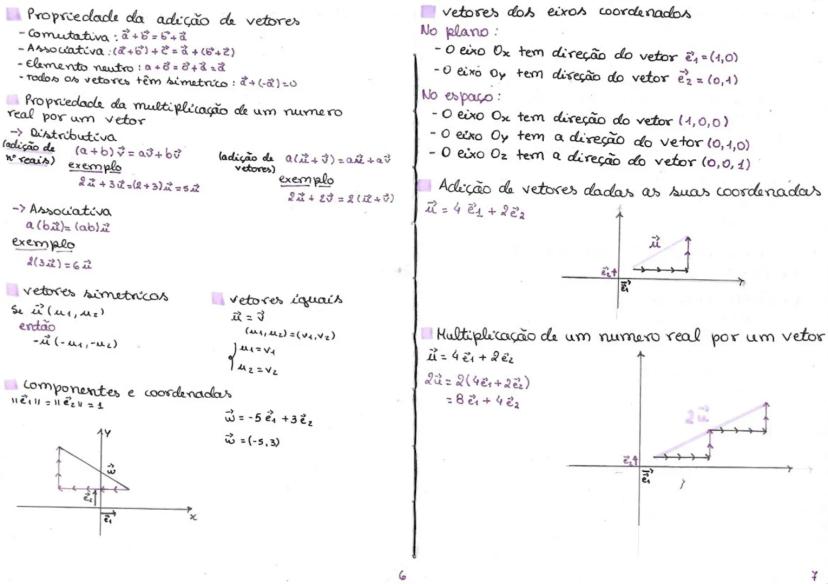 Propriedade da adição de vetores
- Comutativa : a⃗ + b⃗ = b⃗ + a⃗
- Associativa : (a⃗+b⃗) + c⃗ = a⃗ + (b⃗+c⃗)
- Elemento neutro : a + 0⃗ = 0⃗ + a⃗ = a⃗
- Todos os vetores têm simetrico : a⃗ + (-a⃗) = 0
Propriedade da multiplicação de um numero
real por um vetor
→ Distributiva
(adição de nº reais) (a+b) v⃗ = av⃗ + bv⃗
exemplo
2u⃗ + 3u⃗ = (2+3)u⃗ = 5u⃗
(adição de vetores) a(u⃗ + v⃗) = au⃗ + av⃗
exemplo
2u⃗ + 2v⃗ = 2(u⃗ + v⃗)
→ Associativa
a(bu⃗) = (ab)u⃗
exemplo
2(3u⃗) = 6u⃗
vetores simetricos
Se u⃗ (u1, u2)
então
-u⃗ (-u1, -u2)
vetores iguais
u⃗ = v⃗
(u1, u2) = (v1, v2)
{ u1 = v1
u2 = v2
Componentes e coordenadas
||e⃗1|| = ||e⃗2|| = 1
w⃗ = -5e⃗1 + 3e⃗2
w⃗ = (-5, 3)
y
w⃗
e⃗2
e⃗1
x
6
vetores dos eixos coordenados
No plano :
- O eixo Ox tem direção do vetor e⃗1 = (1,0)
- O eixo Oy tem direção do vetor e⃗2 = (0,1)
No espaço :
- O eixo Ox tem direção do vetor (1,0,0)
- O eixo Oy tem a direção do vetor (0,1,0)
- O eixo Oz tem a direção do vetor (0,0,1)
Adição de vetores dadas as suas coordenadas
u⃗ = 4e⃗1 + 2e⃗2
u⃗
e⃗2
e⃗1
Multiplicação de um numero real por um vetor
u⃗ = 4e⃗1 + 2e⃗2
2u⃗ = 2(4e⃗1 + 2e⃗2)
= 8e⃗1 + 4e⃗2
2u⃗
e⃗2
e⃗1
7